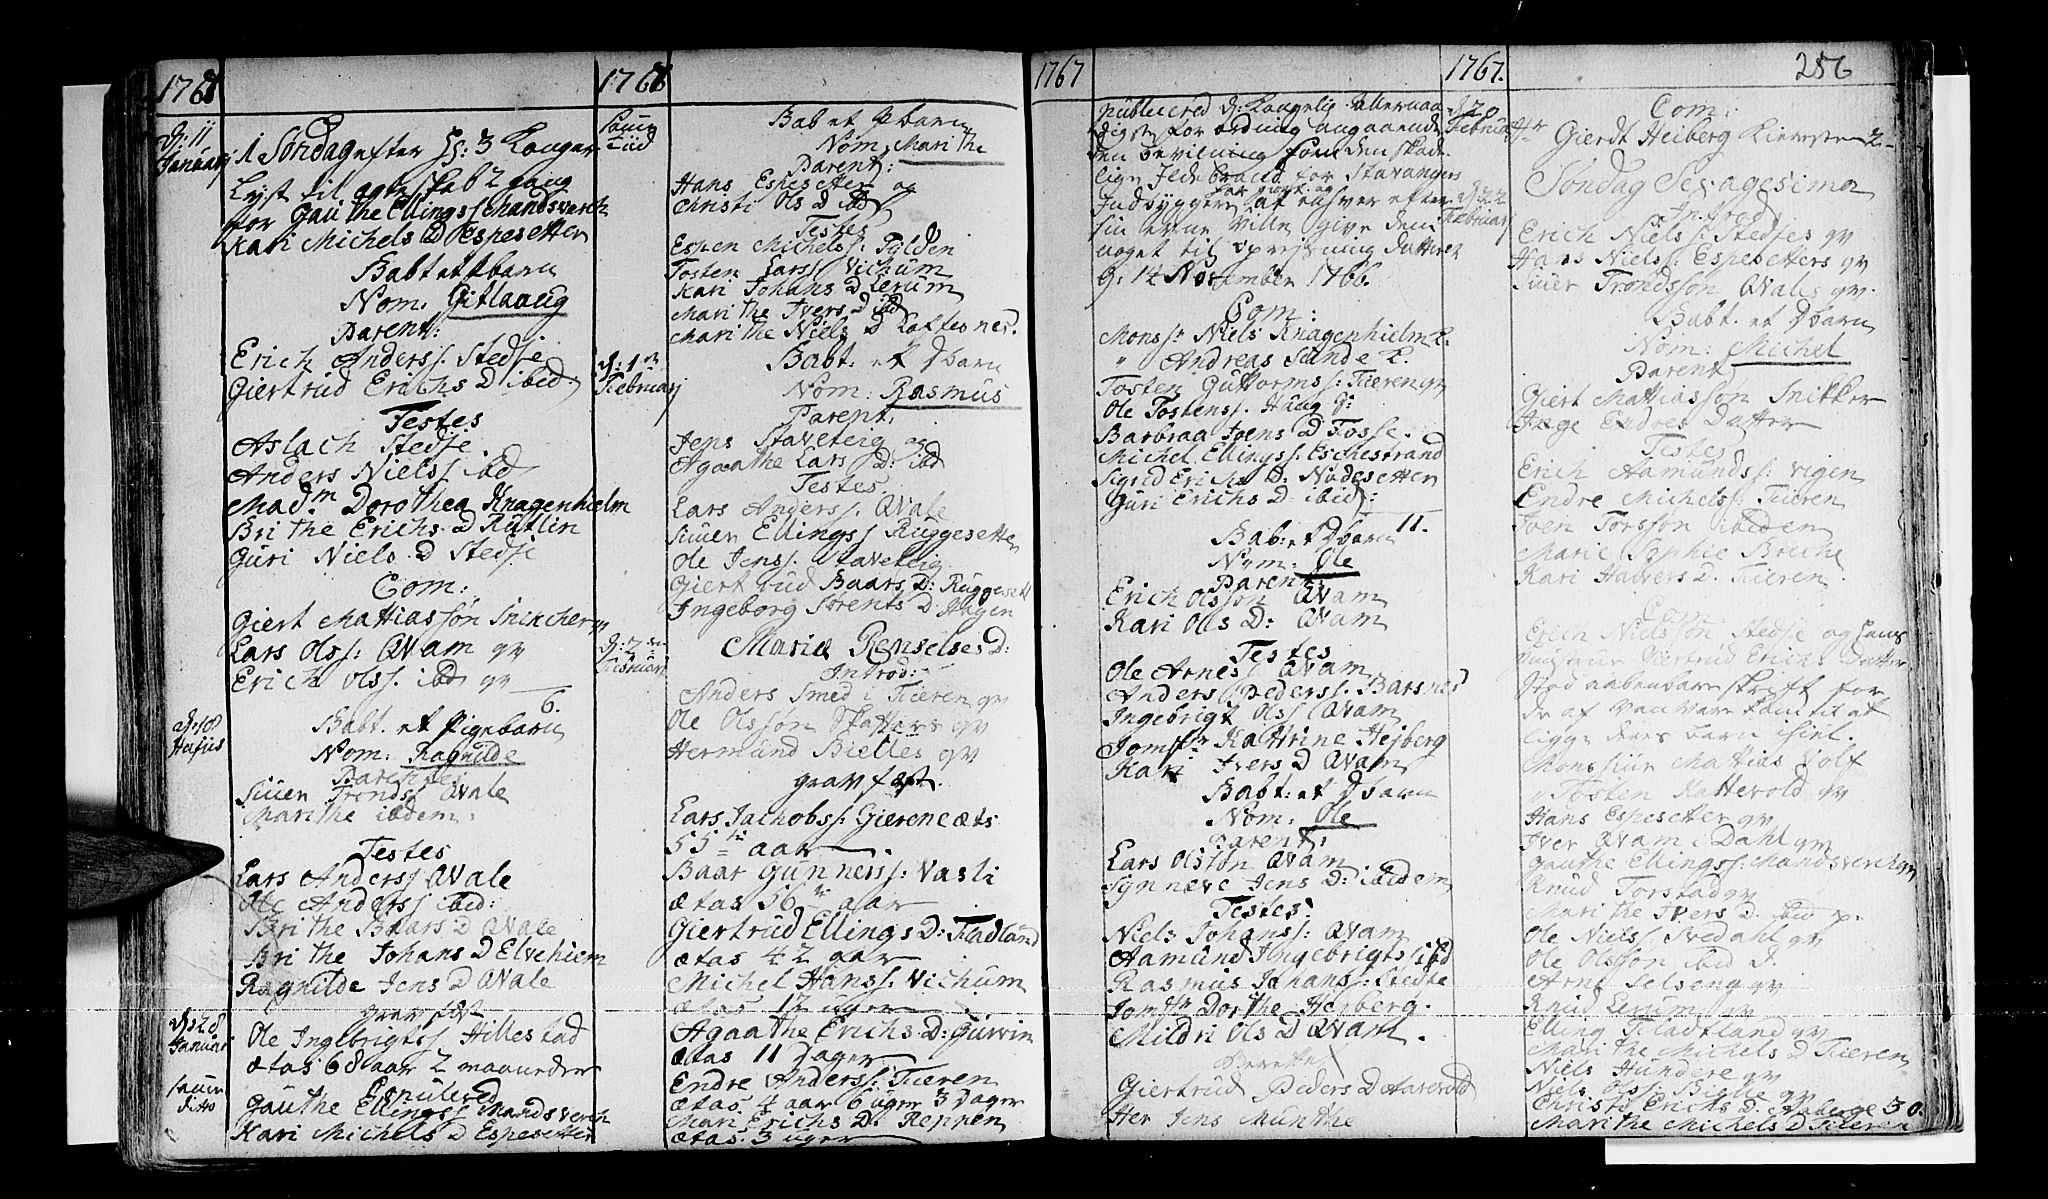 1767
d: 11
Januarj
1 Søndag efter H: 3 Konger
Lyst til ægteskab 2 gang
for Gauthe Ellings: Mandsverch
Kari Michels D Espesetter
Babt et Pbarn
Nom: Gitlaaug
Parent:
Erich Anderss: Stedje
Giertrud Erichs D ibid:
Testes
Aslach Stedje
Anders Nielss ibd
Madm Dorothea Knagenhielm
Brithe Erichs D Rutlin
Guri Niels D Stedje
Com:
Giert Mattiassøn Snikcher qv
Lars Olss: Qvam qv
Erich Olss. ibd qv
6.
d: 18
Hujus
Babt. et Pigebarn
Nom: Ragnilde
Parentes
Siuer Tronds Qvale
Marithe ibdem.
Testes
Lars Anderss Qvale
Ole Anderss ibid:
Brithe Baars D Qvale
Brithe Johans D Elvehiem
Ragnilde Jens D Qvale
grav fæst
d: 28
Januarj
Ole Ingebrigtss Hillestad
ætas 68 aar 2 maaneder
samme
ditto
Copulered
Gauthe Ellingss Mandsverch
Kari Michels D Espesetter
1767
samme
tiid
Bab et Pbarn
Nom, Marithe
Parent:
Hans Espesetter og
Christi Ols D ibd
Testes
Espen Michelss: Fylden
Tosten Larss Vichum
Kari Johans D Lerum
Marithe Ivers D ibd
Marithe Niels D Loftesnes.
d: 1
Februarj
Babt. et Dbarn
Nom: Rasmus
Parent,
Jens Staveteig og
Agaathe Lars D: ibd
Testes.
Lars Anderss. Qvale
Siuer Ellingss Ruggesetter
Ole Jenss. Staveteig
Giertrud Baars D: Ruggesett
Ingeborg Sørens D: Hagen
d: 2
Februarj
Mariæ Renselses D:
Introd:
Anders Smed i Fieren qv
Ole Olssøn Skatters qv
Hermund Bielles qv
grav fæst.
Lars Jachobss: Gierene æts
55 aar
Baar Gunnerss: Vasli
ætas 56 aar
Giertrud Ellings D: Fladland
ætas 42 aar
Michel Hanss: Vichum
ætas 12 uger
Agaathe Erichs D: Gurvin
ætas 11 Dager
Endre Anderss: Fieren
ætas 4 aar 6 uger 3 Dager
Mari Erichs D: Reppen
ætas. 3 uger
1767
publicered d: Kongelig allernaa
digste forordning angaaende
en bevilning som den skade
lige Ildebrand for Stavangers
Indbyggere har giort og at enhver efter
sin evne Ville give dem
noget til opreisning datteret
d: 14 November 1766.
Com:
Monsr Niels Knagenhielm 2.
" Andreas Sunde 2.
Tosten Guttormss: Fieren qv
Ole Tostenss. Haug q:
Barbraa Joens D Fosse.
Michel Ellingss: Eschestrand
Sigrid Erichs D: Nodesetter
Guri Erichs D: ibid:
11.
Bab: et Dbarn
Nom: Ole
Parent:
Erich Olssøn Qvam
Kari Ols D: Qvam
Testes
Ole Arness Qvam
Anders Pederss: Barsnes
Ingebrigt Olss Qvam
Jomfr Kathrine Hejberg
Kari Ivers D Qvam
Babt: et Dbarn
Nom: Ole
Parent:
Lars Olssøn Qvam
Synneve Jens D: ibidem
Testes:
Niels Johanss: Qvam
Aamund Ingebrigts ibd
Rasmus Johanss: Stedje
Jomfr Dorthe Heyberg.
Mildri Ols D Qvam.
Giertrud Peders D Aarevold
Her Jens Munthe
1767.
256
d 20
Februarj
Com:
Hr Gierdt Heiberg Kiereste 2.
d 22
Februarj
Søndag Sexagesima
Introd.
Erich Nielss: Stedjes qv
Hans Nielss: Espesetters qv
Siuer Trondssøn Qvales qv.
Babt. et Dbarn
Nom: Michel
Parent
Giert Mattiassøn Snikker
Inge Endres Datter
Testes
Erich Aamundss: Vigen
Endre Michelss: Fieren
Joen Torssøn ibidem
Marie Sophie Breche
Kari Halvers D. Fieren.
Com:
Erich Nielssøn Stedje og hans
Hustrue Giertrud Erichs Datter
Stod aabenbare skrift for
de af Vanvare kom til at
ligge deres barn ihiel.
Monsiur Mattias Volf
" Tosten Kattevold qv
Hans Espesetter qv
Iver Qvam i Dahl qv
Gauthe Ellingss: Mandsverch qv
Knud Torstad qv
Marithe Ivers D. ibid p.
Ole Nielss Svedahl qv
Ole Olssøn ibid d.
Arne Selseng qv
Knud Lerum qv
Elling Fladtland qv
Marithe Michels D Fieren
Niels Hundere qv
Niels Olss: Bielle qv
Christi Erichs D. 30.
Marithe Michels D Fieren